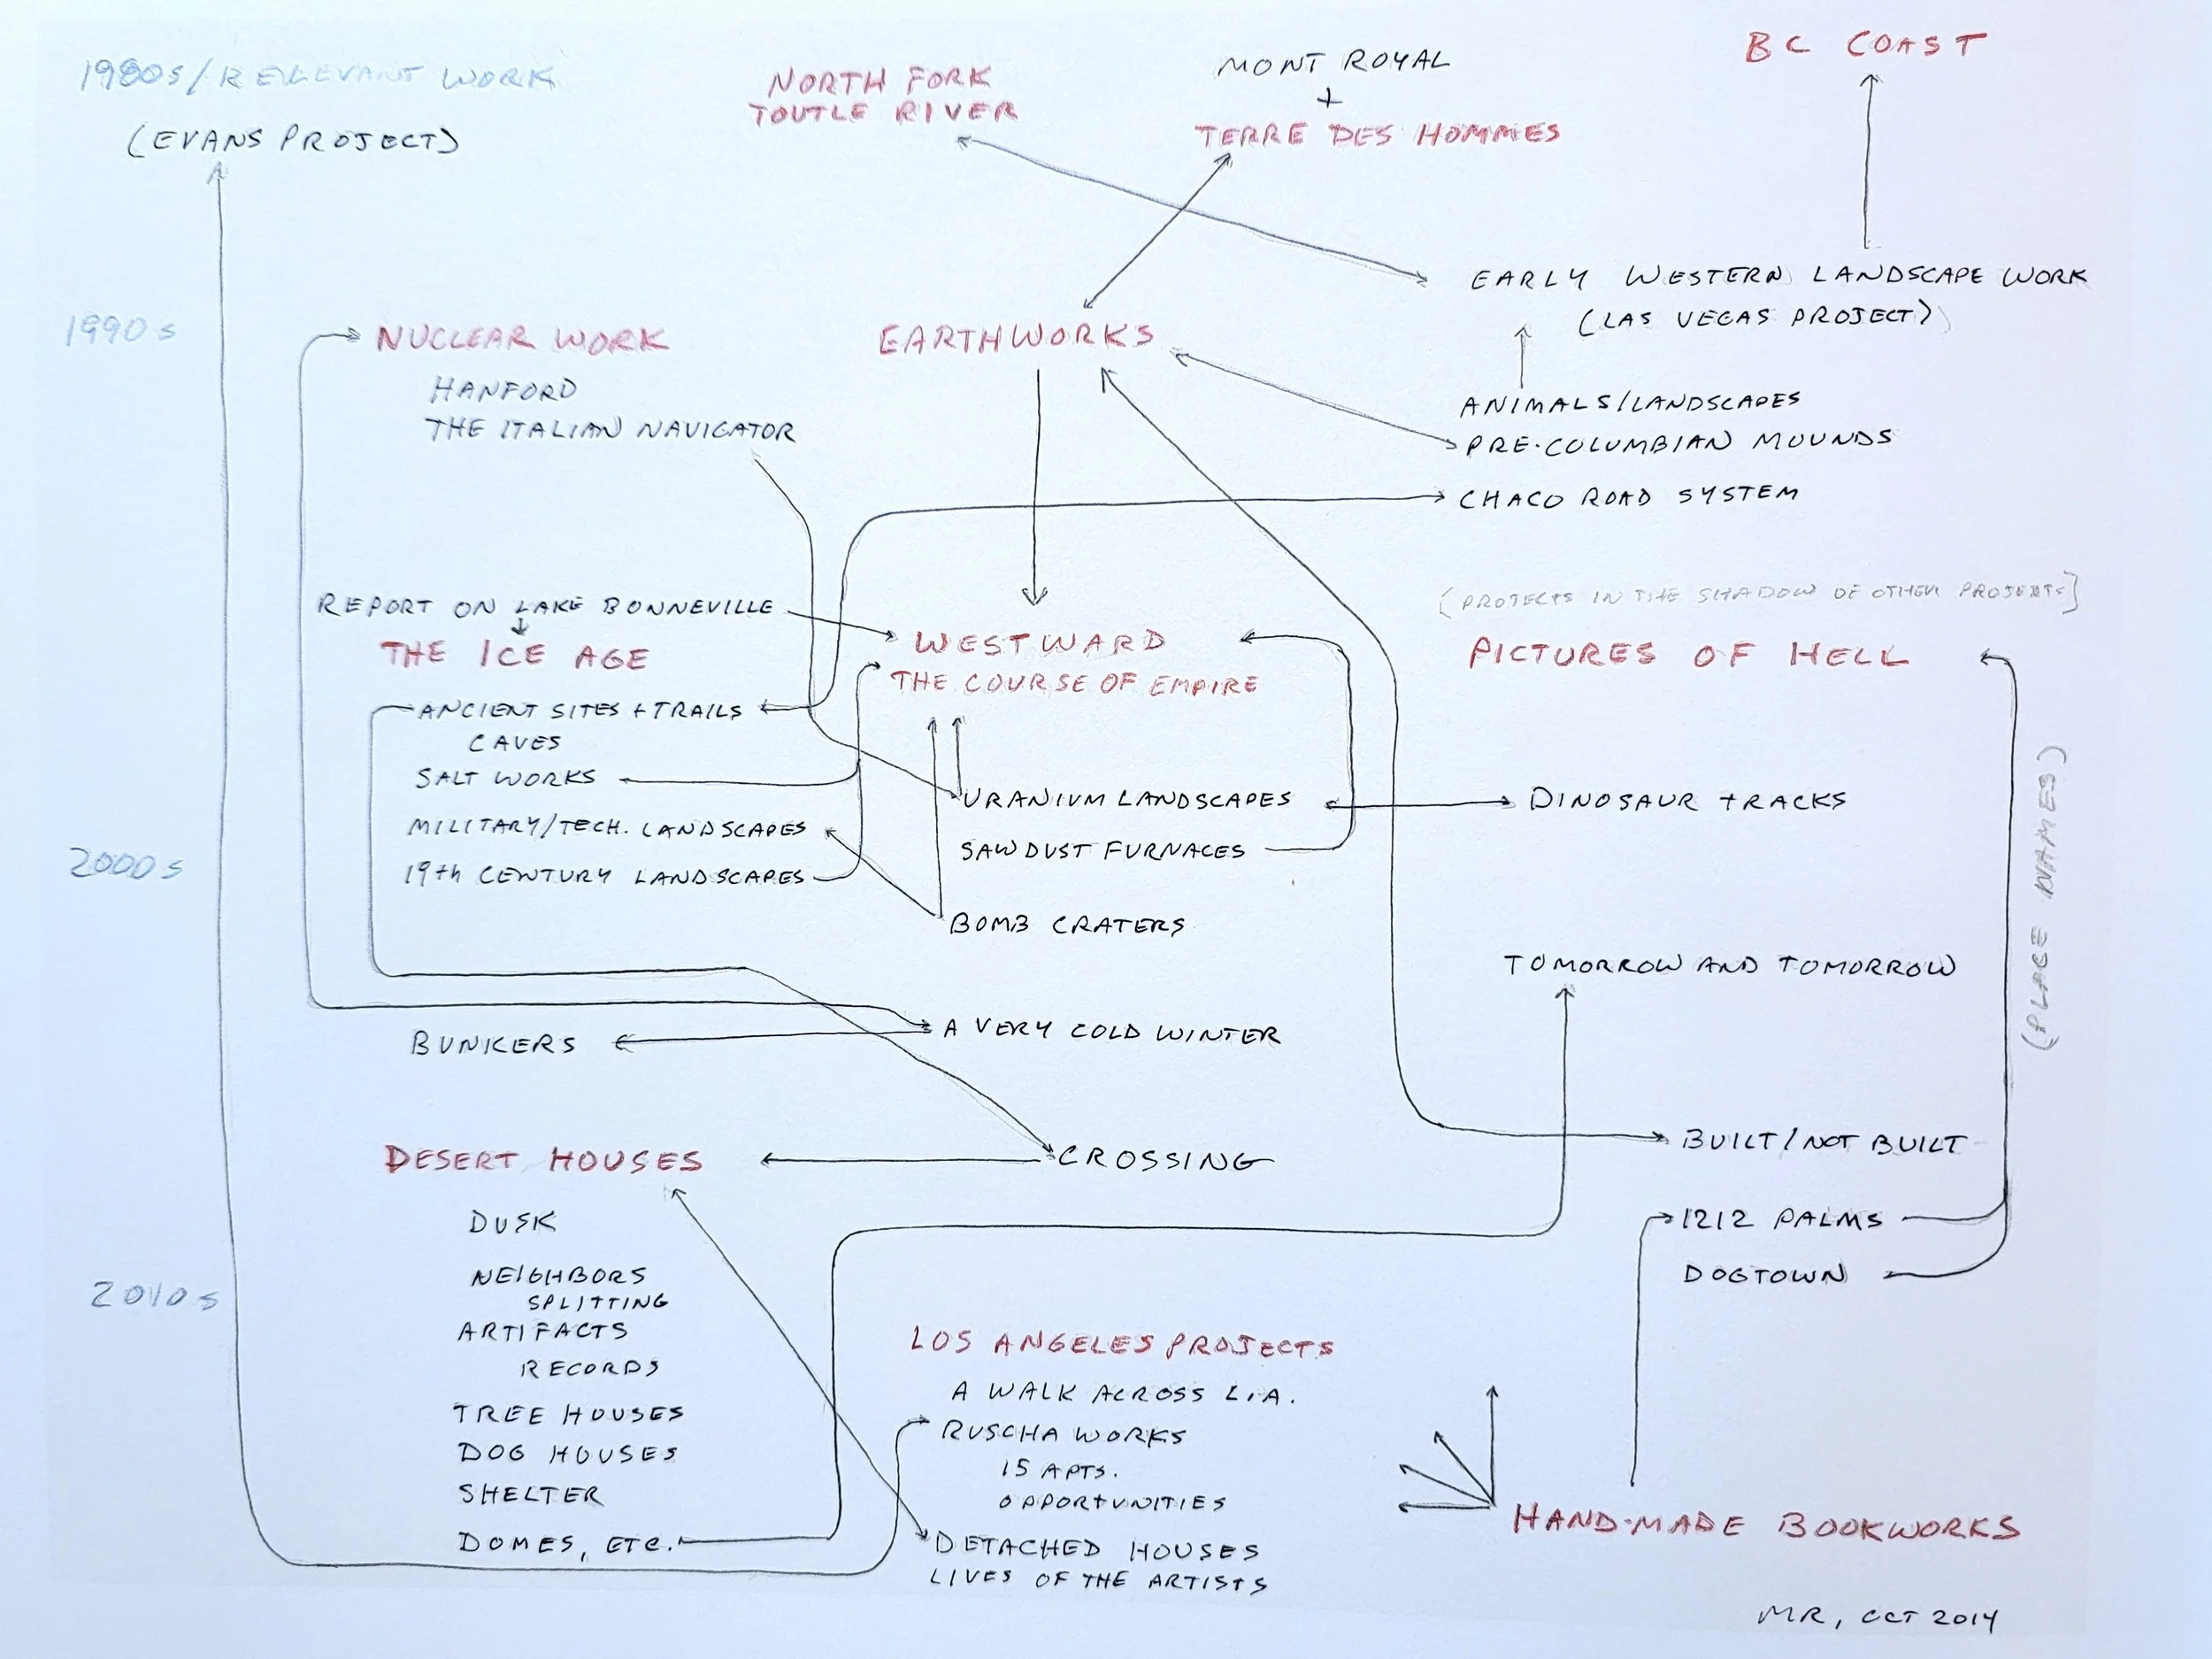 1980s/RELEVANT WORK
(EVANS PROJECT)
NORTH FORK
TOUTLE RIVER
MONT ROYAL
+
TERRE DES HOMMES
BC COAST
EARLY WESTERN LANDSCAPE WORK
(LAS VEGAS PROJECT)
1990s
NUCLEAR WORK
HANFORD
THE ITALIAN NAVIGATOR
EARTHWORKS
ANIMALS/LANDSCAPES
PRE-COLUMBIAN MOUNDS
CHACO ROAD SYSTEM
REPORT ON LAKE BONNEVILLE
THE ICE AGE
ANCIENT SITES + TRAILS
CAVES
SALT WORKS
MILITARY/TECH. LANDSCAPES
19th CENTURY LANDSCAPES
WESTWARD
THE COURSE OF EMPIRE
URANIUM LANDSCAPES
SAWDUST FURNACES
BOMB CRATERS
[PROJECTS IN THE SHADOW OF OTHER PROJECTS]
PICTURES OF HELL
DINOSAUR TRACKS
(PLACE NAMES)
2000s
TOMORROW AND TOMORROW
BUNKERS
A VERY COLD WINTER
DESERT HOUSES
CROSSING
BUILT/NOT BUILT
1212 PALMS
DOGTOWN
2010s
DUSK
NEIGHBORS
SPLITTING
ARTIFACTS
RECORDS
TREE HOUSES
DOG HOUSES
SHELTER
DOMES, ETC.
LOS ANGELES PROJECTS
A WALK ACROSS L.A.
RUSCHA WORKS
15 APTS.
OPPORTUNITIES
DETACHED HOUSES
LIVES OF THE ARTISTS
HAND-MADE BOOKWORKS
MR, OCT 2014